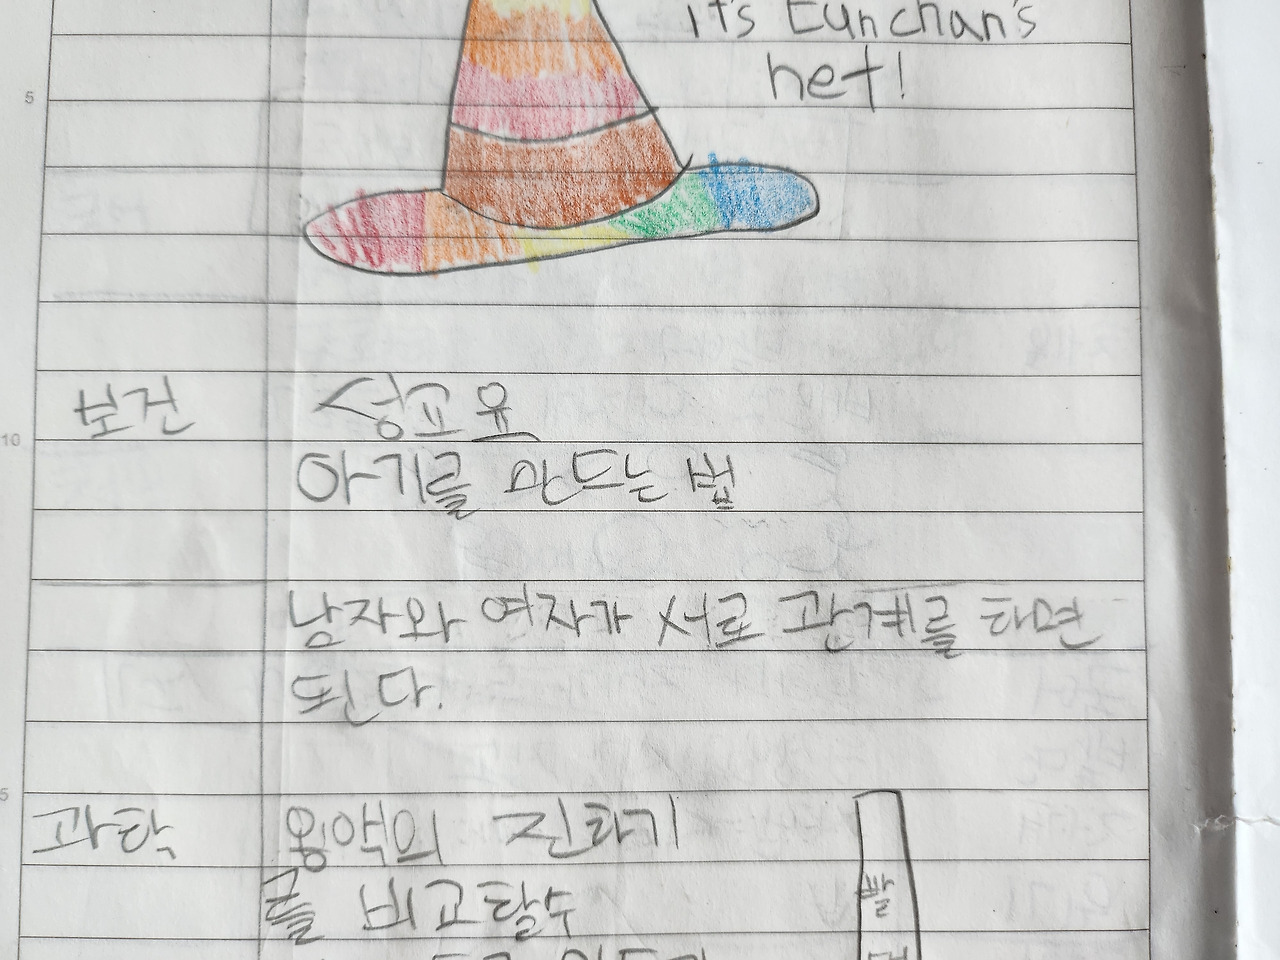 it's Eunchan's
het!
5
보건 성교육
10
아기를 만드는 법
남자와 여자가 서로 관계를 하면
된다.
5
과학 용액의 진하기
를 비교할수
빨